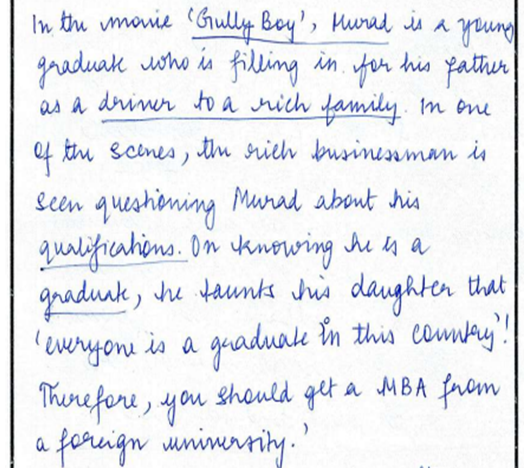 In the movie 'Gully Boy', Murad is a young
graduate who is filling in for his father
as a driver to a rich family. In one
of the scenes, the rich businessman is
seen questioning Murad about his
qualifications. On knowing he is a
graduate, he taunts his daughter that
'everyone is a graduate in this country'!
Therefore, you should get a MBA from
a foreign university.'